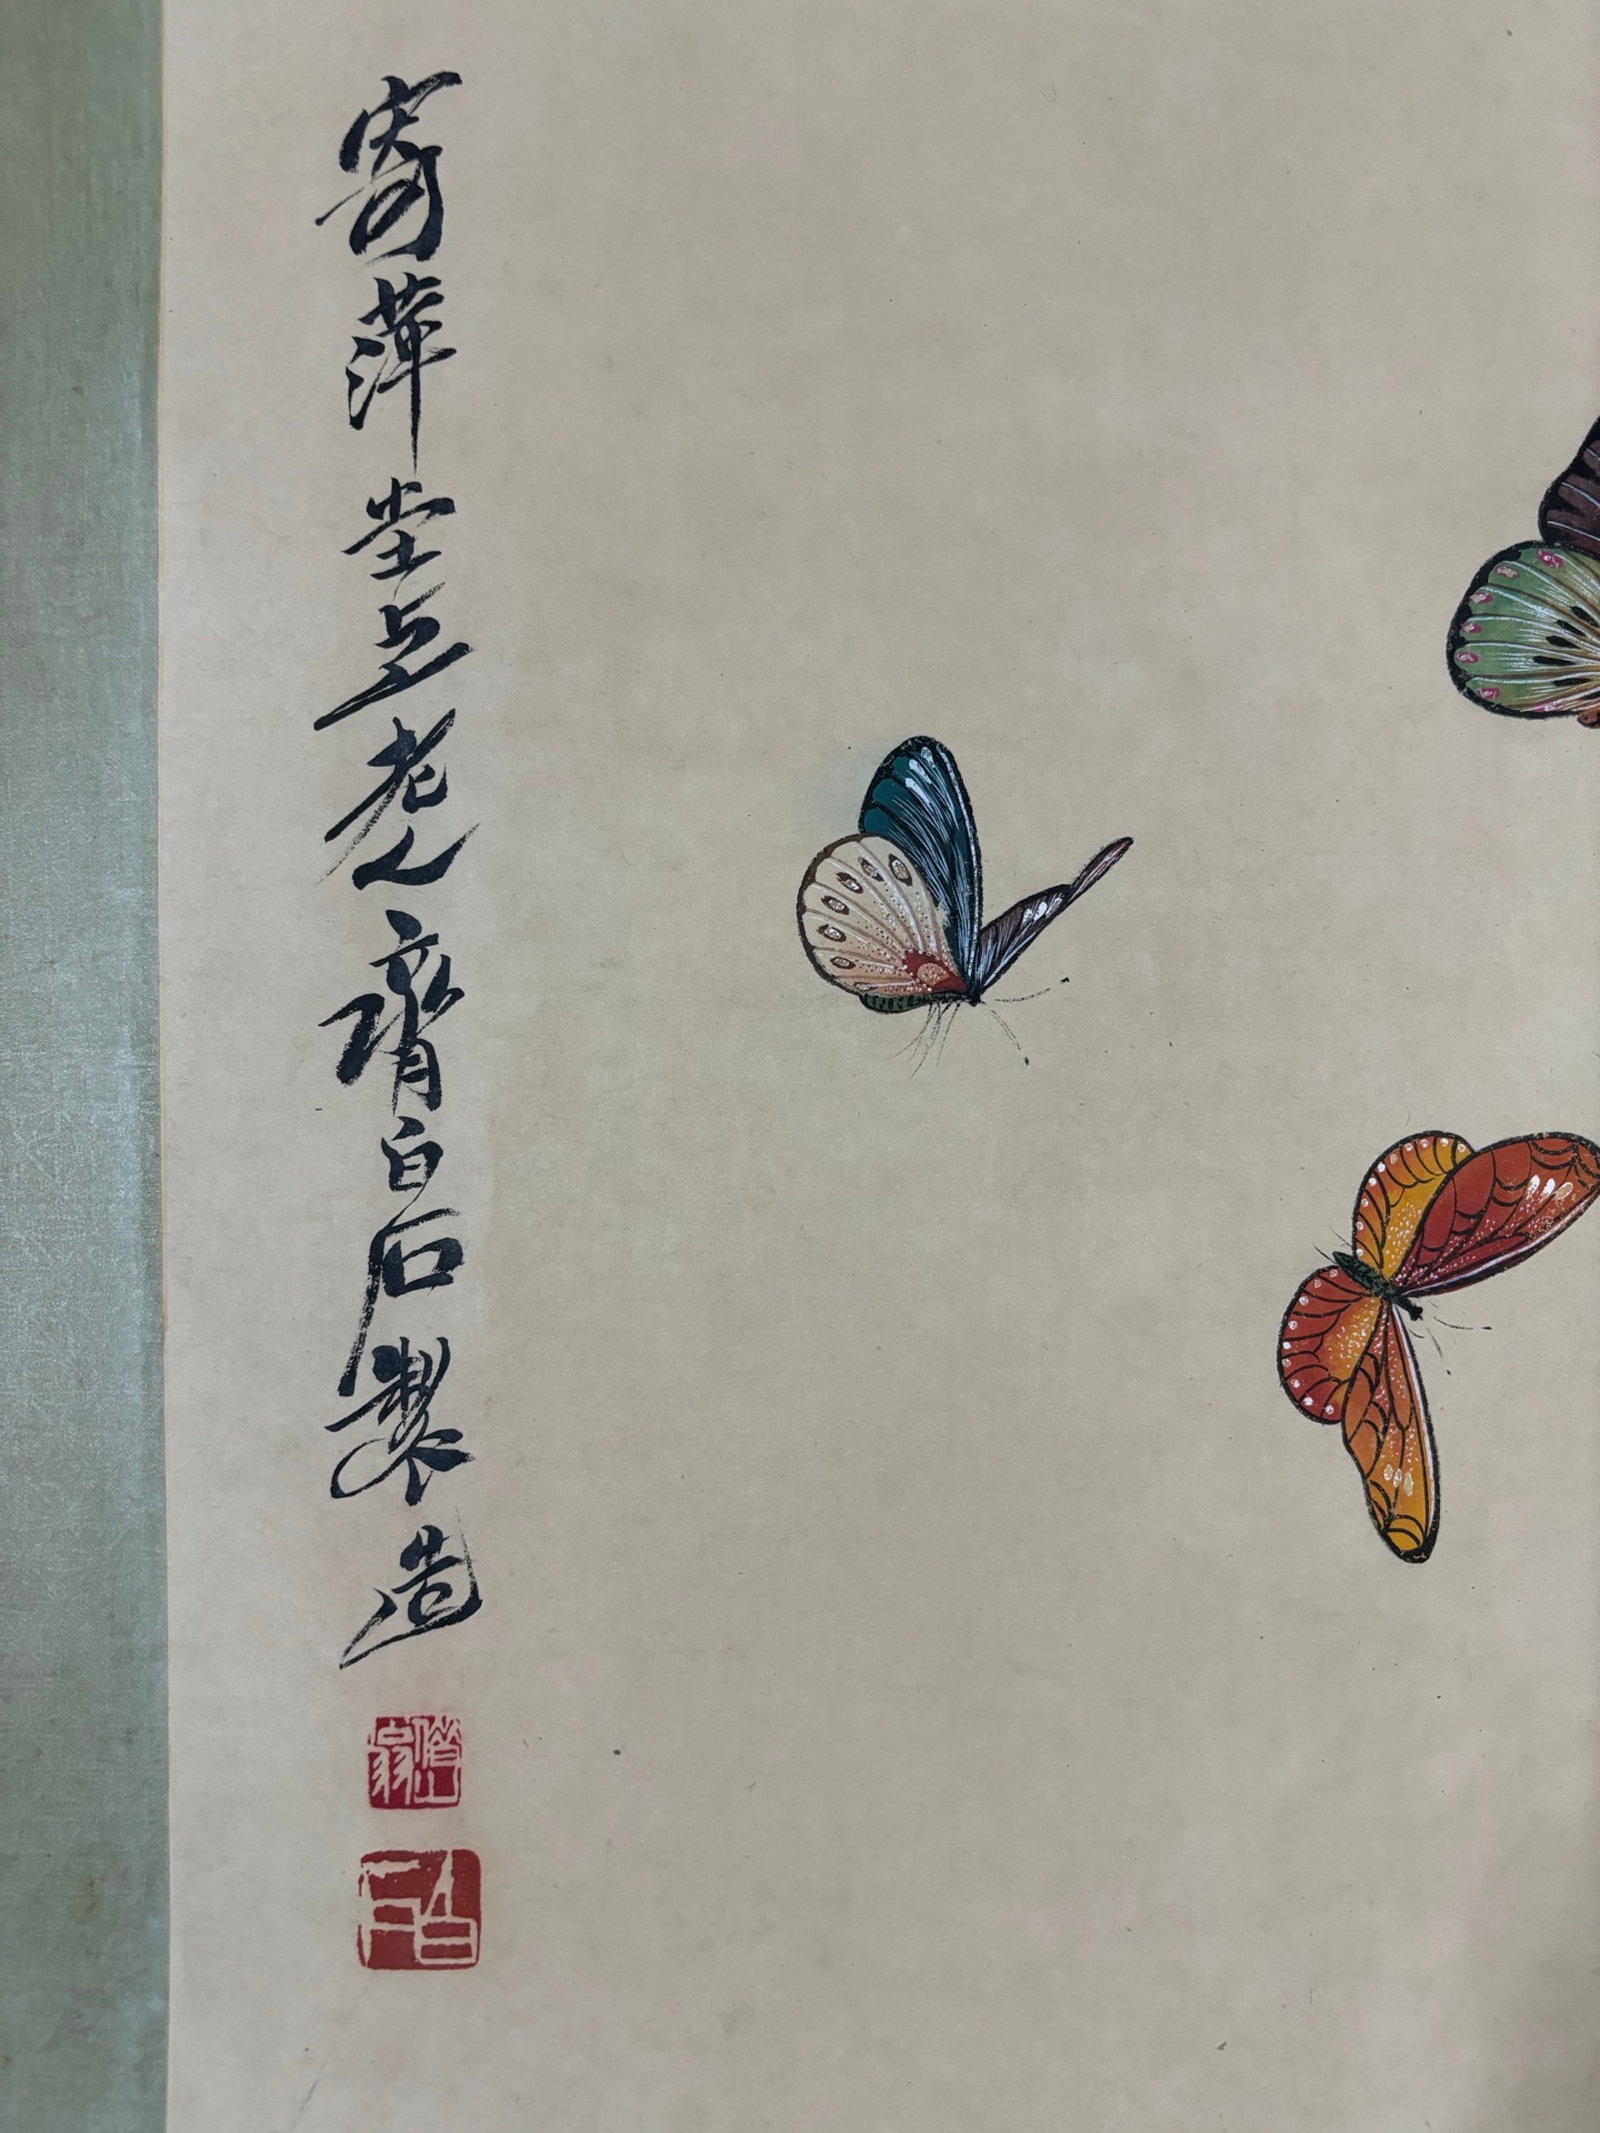 寄萍堂上老人齊白石製造
借山翁
白石